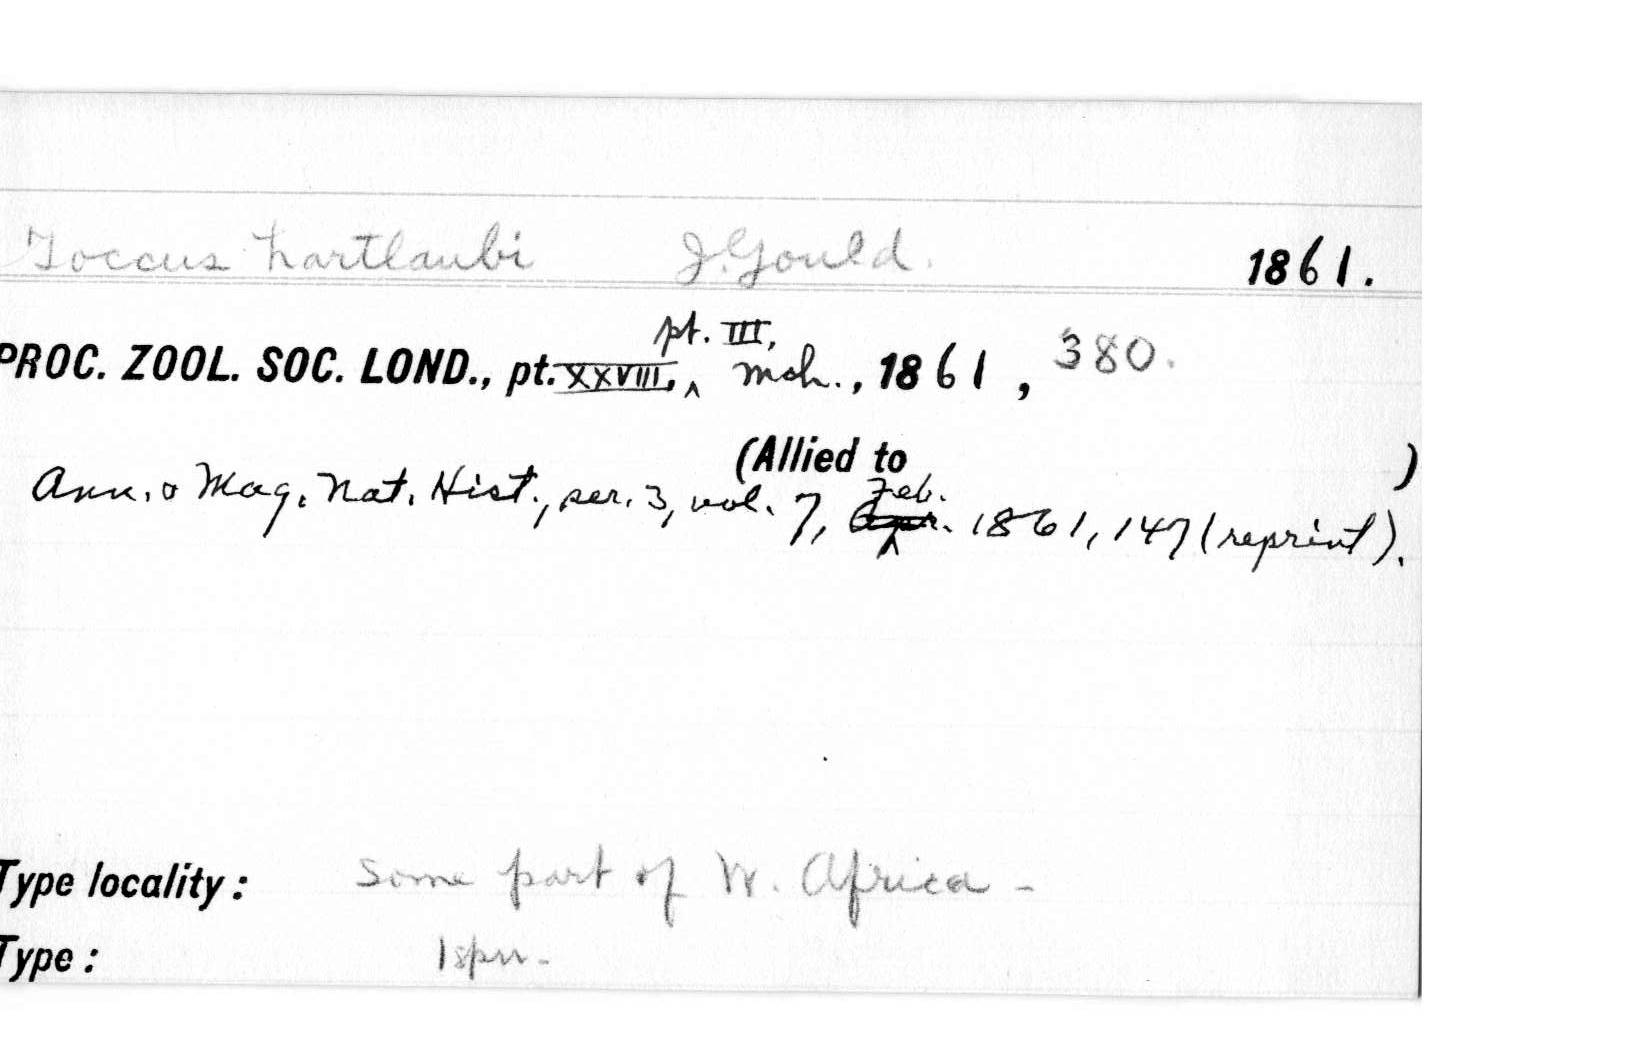 Toccus hartlaubi J. Gould. 1861.
pt. III,
PROC. ZOOL. SOC. LOND., pt. XXVIII, ^ mch., 1861, 380.
(Allied to )
Feb.
Ann. & Mag. Nat. Hist., ser. 3, vol. 7, Apr. 1861, 147 (reprint).
Type locality: Some part of W. Africa -
Type: 1 spn -